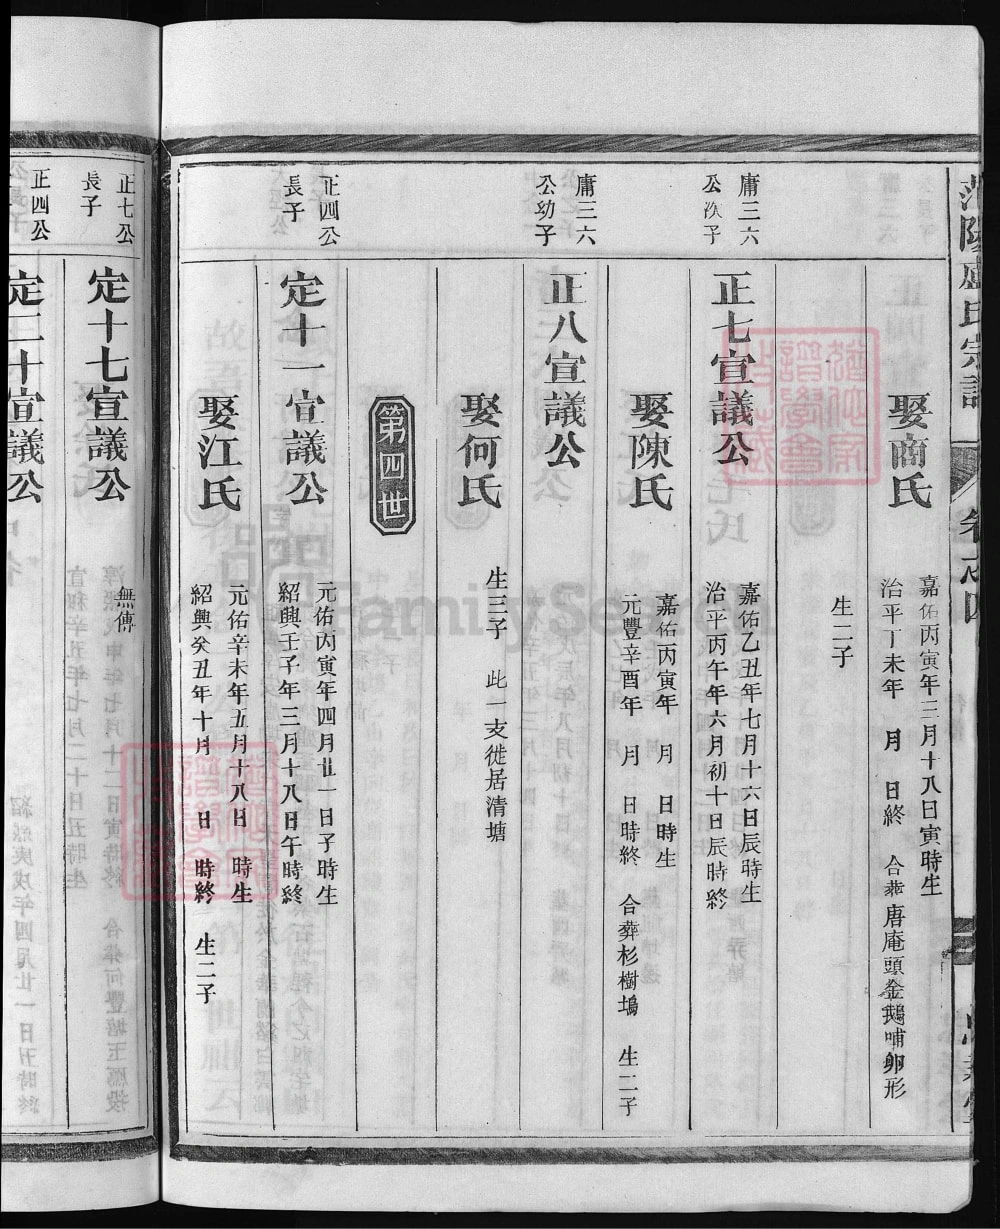 盧氏宗譜
娶商氏
嘉佑丙寅年三月十八日寅時生
治平丁未年 月 日終 合葬唐庵頭金鵝哺卵形
生二子
庸三六
公次子
正七宣議公
嘉佑乙丑年七月十六日辰時生
治平丙午年六月初十日辰時終
娶陳氏
嘉佑丙寅年 月 日時生
元豐辛酉年 月 日時終 合葬杉樹塢 生二子
庸三六
公幼子
正八宣議公
娶何氏
生三子 此一支徙居清塘
第四世
正四公
長子
定十一宣議公
元佑丙寅年四月廿一日子時生
紹興壬子年三月十八日午時終
娶江氏
元佑辛未年五月十八日 時生
紹興癸丑年十月 日 時終 生二子
正七公
長子
定十七宣議公
無傳
正四公
定二十宣議公
FamilySearch